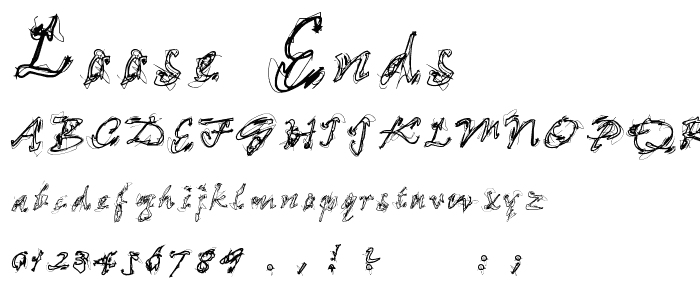 Loose Ends
ABCDEFGHIJKLMNOPQR
abcdefghijklmnopqrstuvwxyz
0123456789 . , ! ? : ;